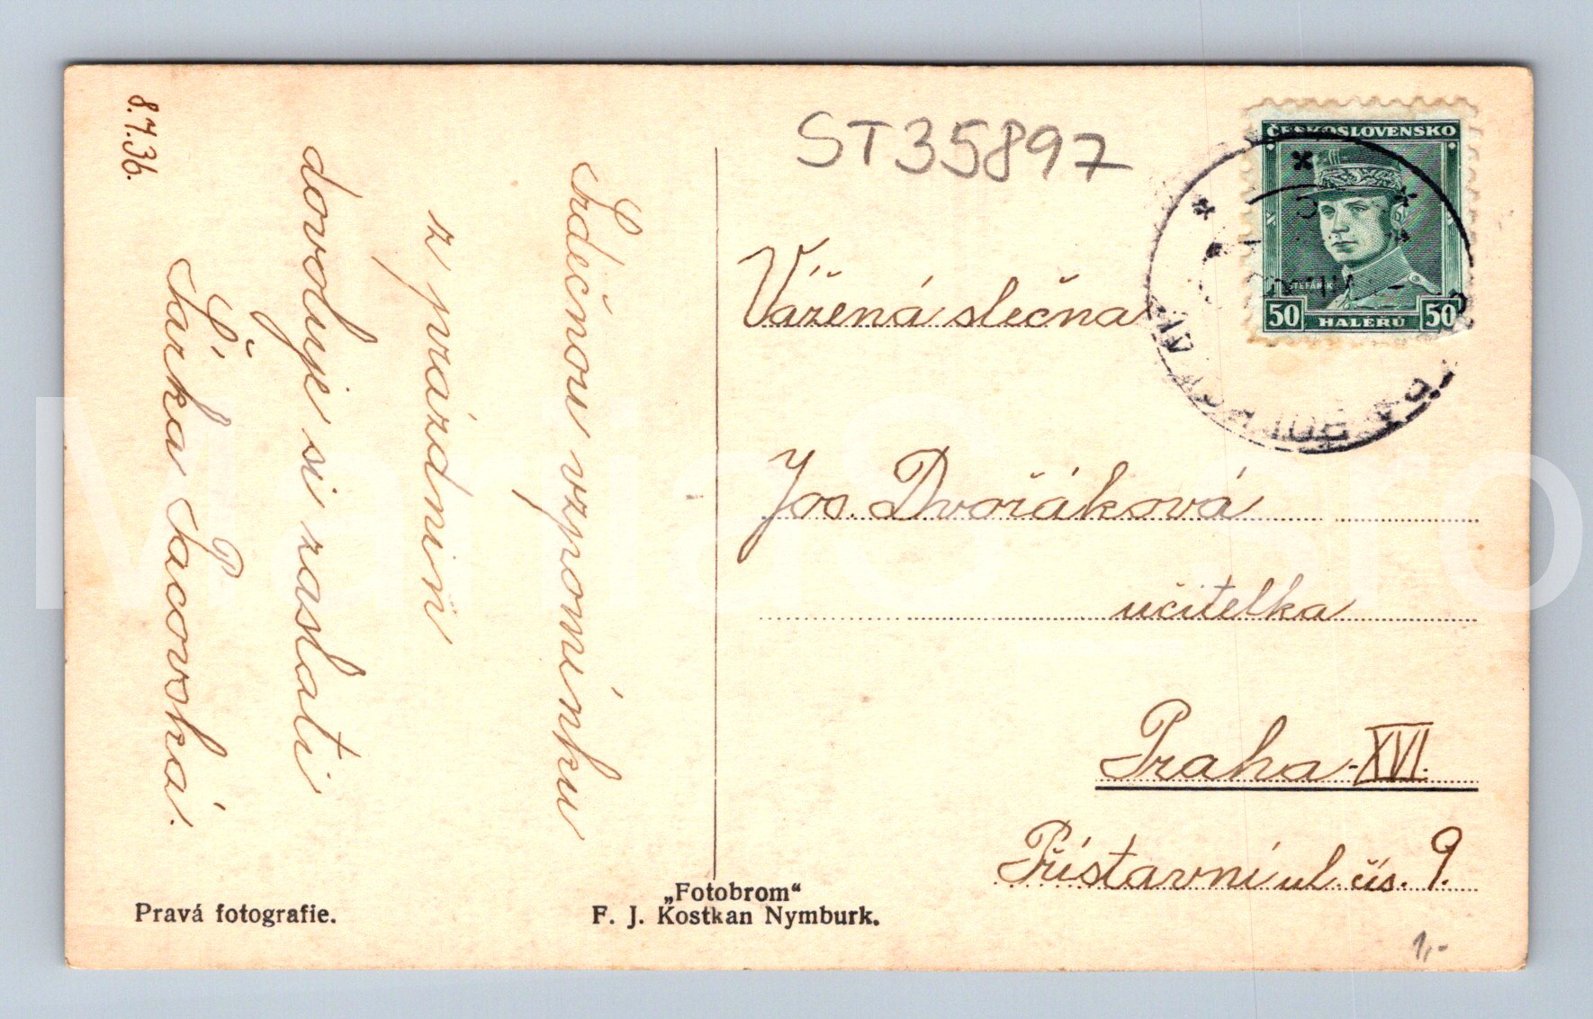 8.7.36.
Srdečnou vzpomínku
z prázdnin
dovoluje si zaslati
Šárka Pacovská.
ST35897
ČESKOSLOVENSKO
ŠTEFÁNIK
50 HALÉŘŮ 50
Vážená slečna
Jos. Dvořáková
učitelka
Praha-XVI.
Přístavní ul. čís. 9.
Pravá fotografie.
„Fotobrom“
F. J. Kostkan Nymburk.
1,-